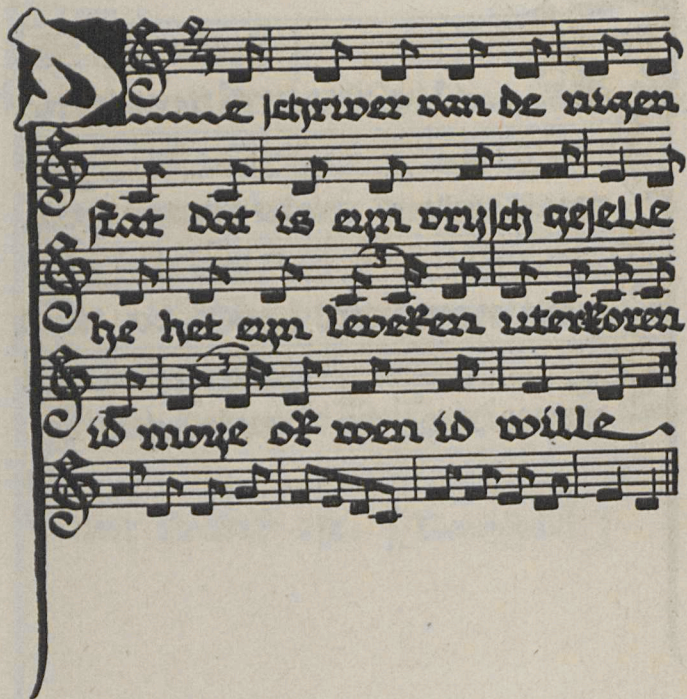 ſchriver van de nigen
ſtat dat is eyn vryſch geſelle
he het eyn leveken uterkoren
id moye ok wen id wille